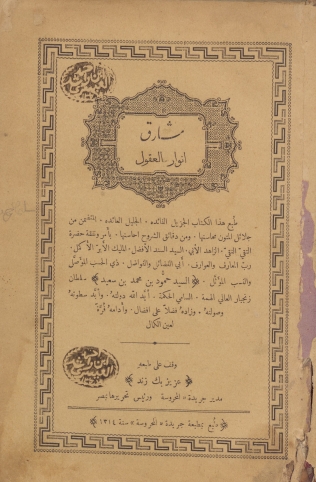 مشارق
انوار العقول
طبع هذا الكتاب الجزيل الفائده . الجليل العائده . المتضمن من
جلائل المتون محاسنها . ومن دقائق الشروح احاسنها . بأمر ونفقة حضرة
التقي النقي . الزاهد الأبي . السيد السند الأفضل . المليك الأبر الأكمل .
ربّ المعارف والعوارف . أبي الفضائل والفواضل . ذي الحسب
والنسب ﴿ السيد حمود بن محمد بن سعيد ﴾ سلطان
زنجبار العالي الهمة . السامي الحكمة . أيد الله دولته . وأبد سطوته
وصولته . وزاده فضلاً على افضال . وأدامه قرّة
لعين الكمال
وقف على طبعه
﴿ عزيز بك زند ﴾
مدير جريدة « المحروسة » ورئيس تحريرها بمصر
﴿ طبع بمطبعة جريدة « المحروسة » سنة ١٣١٤ ﴾